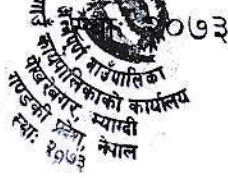 ०७३
अन्नपूर्ण गाउँपालिका
गाउँ कार्यपालिकाको कार्यालय
पोखरेबगर, म्याग्दी
गण्डकी प्रदेश, नेपाल
स्था: २०७३